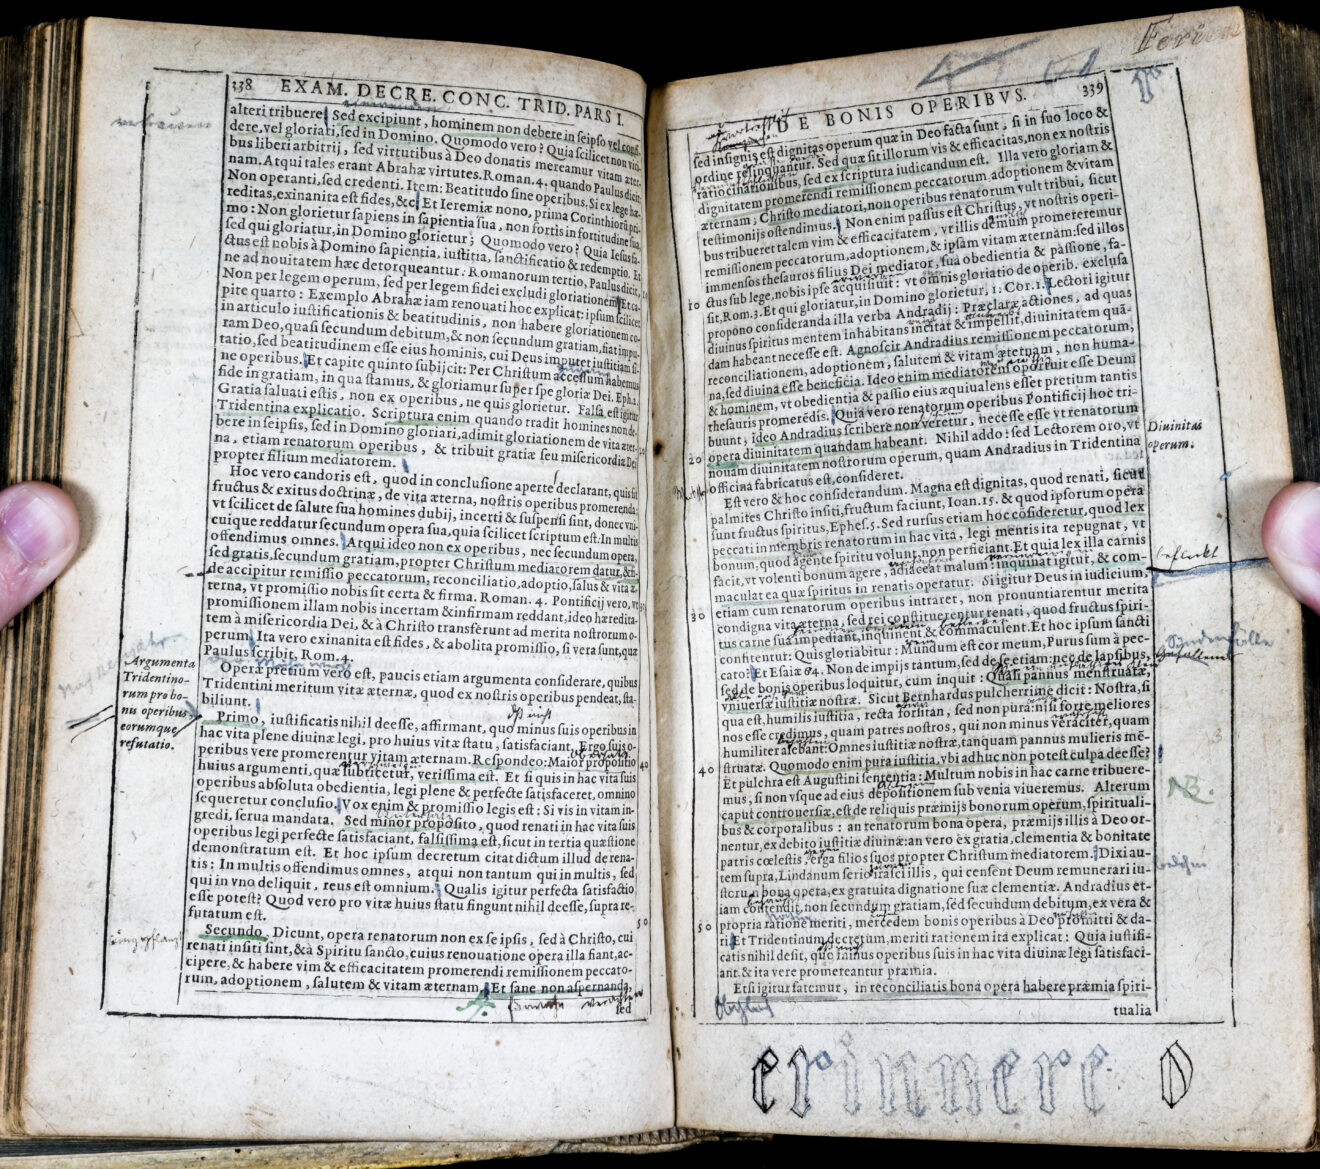 338 EXAM. DECRE. CONC. TRID. PARS I.
alteri tribuere. Sed excipiunt, hominem non debere in seipso vel confi-
dere, vel gloriari, sed in Domino. Quomodo vero? Quia scilicet non viri-
bus liberi arbitrij, sed virtutibus à Deo donatis mereamur vitam æter-
nam. Atqui tales erant Abrahæ virtutes. Roman. 4, quando Paulus dicit:
Non operanti, sed credenti. Item: Beatitudo sine operibus, Si ex lege hæ-
reditas, exinanita est fides, &c. Et Ieremiæ nono, prima Corinthiorū pri-
mo: Non glorietur sapiens in sapientia sua, non fortis in fortitudine sua,
sed qui gloriatur, in Domino glorietur; Quomodo vero? Quia Iesus fa-
ctus est nobis à Domino sapientia, iustitia, sanctificatio & redemptio. Et
ne ad nouitatem hæc detorqueantur: Romanorum tertio, Paulus dicit,
Non per legem operum, sed per legem fidei excludi gloriationem. Et ca-
pite quarto: Exemplo Abrahæ iam renouati hoc explicat: ipsum scilicet
in articulo iustificationis & beatitudinis, non habere gloriationem co-
ram Deo, quasi secundum debitum, & non secundum gratiam, fiat impu-
tatio, sed beatitudinem esse eius hominis, cui Deus imputet iustitiam si-
ne operibus. Et capite quinto subijcit: Per Christum accessum habemus
fide in gratiam, in qua stamus, & gloriamur super spe gloriæ Dei. Epha.
Gratia saluati estis, non ex operibus, ne quis glorietur. Falsa est igitur
Tridentina explicatio. Scriptura enim quando tradit homines non de-
bere in seipsis, sed in Domino gloriari, adimit gloriationem de vita æter-
na, etiam renatorum operibus, & tribuit gratiæ seu misericordiæ Dei
propter filium mediatorem.
Hoc vero candoris est, quod in conclusione aperte declarant, quis sit
fructus & exitus doctrinæ, de vita æterna, nostris operibus promerenda:
vt scilicet de salute sua homines dubij, incerti & suspensi sint, donec vni-
cuique reddatur secundum opera sua, quia scilicet scriptum est: In multis
offendimus omnes. Atqui ideo non ex operibus, nec secundum opera,
sed gratis, secundum gratiam, propter Christum mediatorem datur, & fi-
de accipitur remissio peccatorum, reconciliatio, adoptio, salus & vita æ-
terna, vt promissio nobis sit certa & firma. Roman. 4. Pontificij vero, vt
promissionem illam nobis incertam & infirmam reddant, ideo hæredita-
tem à misericordia Dei, & à Christo transferunt ad merita nostrorum o-
perum. Ita vero exinanita est fides, & abolita promissio, si vera sunt, quæ
Paulus scribit, Rom. 4.
Operæ pretium vero est, paucis etiam argumenta considerare, quibus
Tridentini meritum vitæ æternæ, quod ex nostris operibus pendeat, sta-
biliunt.
Argumenta
Tridentino-
rum pro bo-
nu operibus
eorumque
refutatio.
Primo, iustificatis nihil deesse, affirmant, quo minus suis operibus in
hac vita plene diuinæ legi, pro huius vitæ statu, satisfaciant, Ergo suis o-
peribus vere promerentur vitam æternam. Respondeo: Maior propositio
huius argumenti, quæ subticetur, verissima est. Et si quis in hac vita suis
operibus absoluta obedientia, legi plene & perfecte satisfaceret, omnino
sequeretur conclusio. Vox enim & promissio legis est: Si vis in vitam in-
gredi, serua mandata. Sed minor proposito, quod renati in hac vita suis
operibus legi perfecte satisfaciant, falsissima est, sicut in tertia quæstione
demonstratum est. Et hoc ipsum decretum citat dictum illud de rena-
tis: In multis offendimus omnes, atqui non tantum qui in multis, sed
qui in vno deliquit, reus est omnium. Qualis igitur perfecta satisfactio
esse potest? Quod vero pro vitæ huius statu fingunt nihil deesse, supra re-
futatum est.
50
Secundo, Dicunt, opera renatorum non ex se ipsis, sed à Christo, cui
renati insiti sint, & à Spiritu sancto, cuius renouatione opera illa fiant, ac-
cipere, & habere vim & efficacitatem promerendi remissionem peccato-
rum, adoptionem, salutem & vitam æternam. Et sane non aspernanda,
sed
DE BONIS OPERIBVS. 339
sed insignis est dignitas operum quæ in Deo facta sunt, si in suo loco &
ordine relinquantur. Sed quæ sit illorum vis & efficacitas, non ex nostris
ratiocinationibus, sed ex scriptura iudicandum est. Illa vero gloriam &
dignitatem promerendi remissionem peccatorum, adoptionem & vitam
æternam, Christo mediatori, non operibus renatorum vult tribui, sicut
testimonijs ostendimus. Non enim passus est Christus, vt nostris operi-
bus tribueret talem vim & efficacitatem, vt illis demum promereremur
remissionem peccatorum, adoptionem, & ipsam vitam æternam: sed illos
immensos thesauros filius Dei mediator, sua obedientia & passione, fa-
10 ctus sub lege, nobis ipse acquisiuit: vt omnis gloriatio de operib. exclusa
sit, Rom. 3. Et qui gloriatur, in Domino glorietur, 1. Cor. 1. Lectori igitur
propono consideranda illa verba Andradij: Præclaræ actiones, ad quas
diuinus spiritus mentem inhabitans incitat & impellit, diuinitatem quā-
dam habeant necesse est. Agnoscit Andradius remissionem peccatorum,
reconciliationem, adoptionem, salutem & vitam æternam, non huma-
na, sed diuina esse beneficia. Ideo enim mediatorem oportuit esse Deum
& hominem, vt obedientia & passio eius æquiualens esset pretium tantis
thesauris promerēdis. Quia vero renatorum operibus Pontificij hoc tri-
buunt, ideo Andradius scribere non veretur, necesse esse vt renatorum
20 opera diuinitatem quandam habeant. Nihil addo: sed Lectorem oro, vt
nouam diuinitatem nostrorum operum, quam Andradius in Tridentina
officina fabricatus est, consideret.
Diuinitas
operum.
Est vero & hoc considerandum. Magna est dignitas, quod renati, sicut
palmites Christo insiti, fructum faciunt, Ioan. 15. & quod ipsorum opera
sunt fructus spiritus, Ephes. 5. Sed rursus etiam hoc cōsideretur, quod lex
peccati in membris renatorum in hac vita, legi mentis ita repugnat, vt
bonum, quod agente spiritu volunt, non perficiant. Et quia lex illa carnis
facit, vt volenti bonum agere, adiaceat malum: inquinat igitur, & com-
maculat ea quæ spiritus in renatis operatur. Si igitur Deus in iudicium,
etiam cum renatorum operibus intraret, non pronuntiarent merita
30 condigna vita æterna, sed rei constituerentur renati, quod fructus spiri-
tus carne sua impediant, inquinent & commaculent. Et hoc ipsum sancti
confitentur: Quis gloriabitur: Mundum est cor meum, Purus sum à pec-
cato? Et Esaiæ 64. Non de impijs tantum, sed de se etiam: nec de lapsibus,
sed de bonis operibus loquitur, cum inquit: Quasi pannus menstruatæ,
vniuersæ iustitiæ nostræ. Sicut Bernhardus pulcherrime dicit: Nostra, si
qua est, humilis iustitia, recta forsitan, sed non pura: nisi forte meliores
nos esse credimus, quam patres nostros, qui non minus veraciter, quam
humiliter aiebant: Omnes iustitiæ nostræ, tanquam pannus mulieris mē-
struatæ. Quomodo enim pura iustitia, vbi adhuc non potest culpa deesse?
40 Et pulchra est Augustini sententia: Multum nobis in hac carne tribuere-
mus, si non vsque ad eius depositionem sub venia viueremus. Alterum
caput controuersiæ, est de reliquis præmijs bonorum operum, spirituali-
bus & corporalibus: an renatorum bona opera, præmijs illis à Deo or-
nentur, ex debito iustitiæ diuinæ: an vero ex gratia, clementia & bonitate
patris cœlestis, erga filios suos propter Christum mediatorem. Dixi au-
tem supra, Lindanum serio irasci illis, qui censent Deum remunerari iu-
storum bona opera, ex gratuita dignatione suæ clementiæ. Andradius et-
iam contendit, non secundum gratiam, sed secundum debitum, ex vera &
50 propria ratione meriti, mercedem bonis operibus à Deo promitti & da-
ri. Et Tridentinum decretum, meriti rationem ita explicat: Quia iustifi-
catis nihil desit, quo minus operibus suis in hac vita diuinæ legi satisfaci-
ant. & ita vere promereantur præmia.
Etsi igitur fatemur, in reconciliatis bona opera habere præmia spiri-
tualia
NB.
erinnere